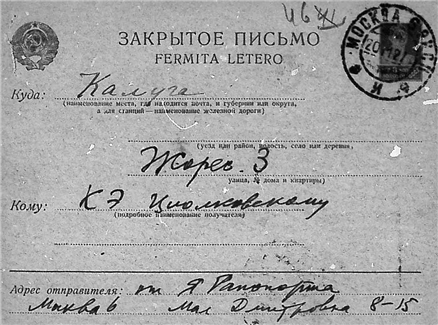 46
ЗАКРЫТОЕ ПИСЬМО
FERMITA LETERO
МОСКВА
Куда: Калуга
(наименование места, где находится почта, и губернии или округа,
а для станций—наименование железной дороги)
(уезд или район, волость, село или деревня)
Жорес. 3
улица, № дома и квартиры)
Кому: КЭ Циолковскому
(подробное наименование получателя)
Адрес отправителя: от Я Рапопорта
Москва 6 Мал Дмитровка 8-15